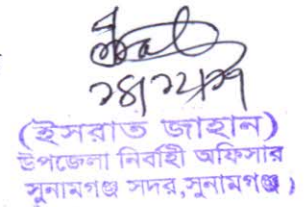 (ইসরাত জাহান)
উপজেলা নির্বাহী অফিসার
সুনামগঞ্জ সদর,সুনামগঞ্জ।